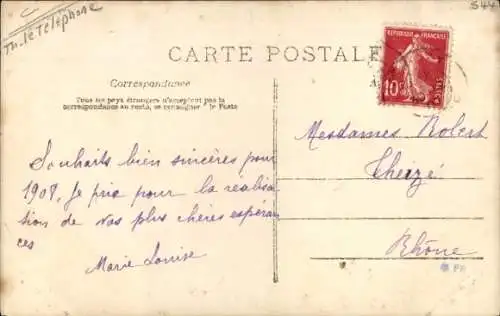 Th. le Téléphone
544
CARTE POSTALE
RÉPUBLIQUE FRANÇAISE
10c
POSTES
Correspondance
Tous les pays étrangers n'acceptent pas la
correspondance au recto, se renseigner à la Poste
Souhaits bien sincères pour
1908, Je prie pour la réalisa
tion de vos plus chères espéran
ces
Marie Louise
Mesdames Robert
Theizé
Rhône
FF